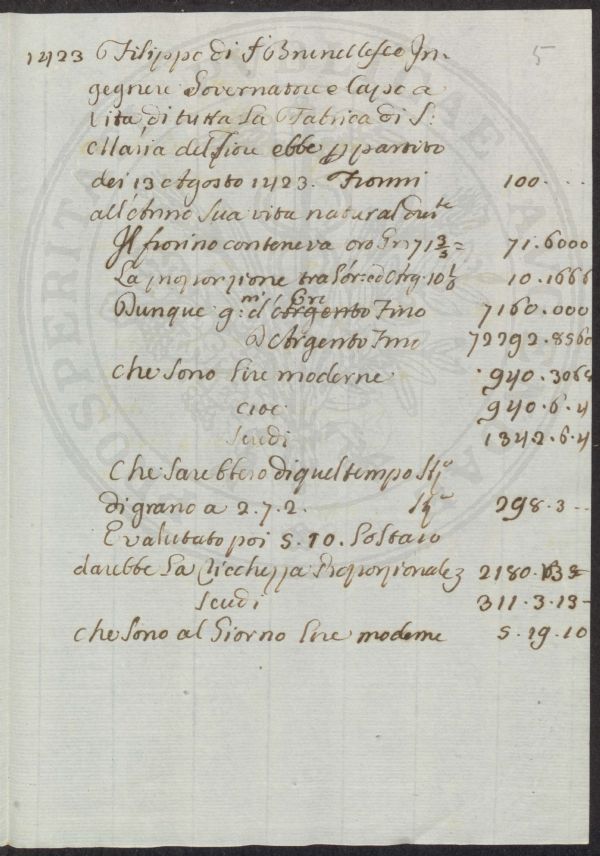 5
1423 Filippo di Sr Brunellesco In-
gegnere Governatore e Capo a
vita di tutta la Fabrica di S:
Maria del Fiore ebbe p partito
dei 13 Agosto 1423. Fiorini 100. . .
all'anno sua vita natural dur.te
Il fiorino conteneva oro Gri 71 3/5 = 71.6000
La proporzione tra l'or: ed Arg. 10 1/6 10.1666
Dunque g: mi d' Argento Gri Fino 7160.000
D'Argento Fino 72792.8560
che sono lire moderne 940.3068
cioe 940.6.4
scudi 134.2.6.4
Che sarebbero di quel tempo
di grano a 2.7.2. 298.3 - -
E valutato poi S. 10. lo staio
darebbe la Ricchezza Proporzionale 2180.
scudi 311.3.13-
che sono al Giorno lire moderne 5.19.10
PROSPERITAS